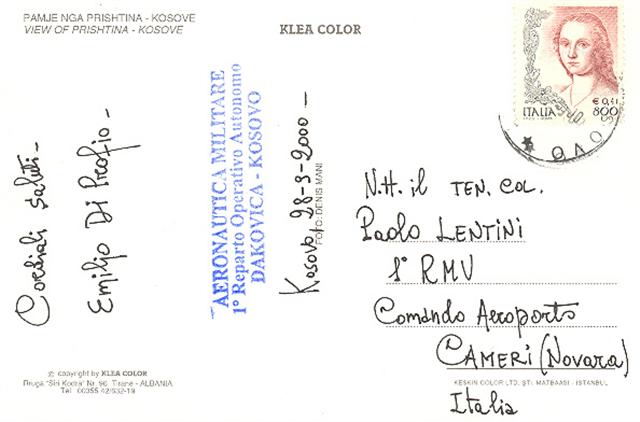 PAMJE NGA PRISHTINA - KOSOVE
VIEW OF PRISHTINA - KOSOVE
KLEA COLOR
ITALIA
€ 0,41
800
OVOSO
Cordiali saluti -
Emilio Di
AERONAUTICA MILITARE
1° Reparto Operativo Autonomo
DAKOVICA - KOSOVO
Kosovo, 28-3-2000 -
FOTO: DENIS MANI
N.H. il TEN. COL.
Paolo LENTINI
1° RMV
Comando Aeroporto
CAMERI (Novara)
Italia
© copyright by KLEA COLOR
Rruga "Siri Kodra" Nr. 96 Tirane - ALBANIA
Tel. 00355 42/632-19
KESKIN COLOR LTD. ŞTİ. MATBAASI - ISTANBUL